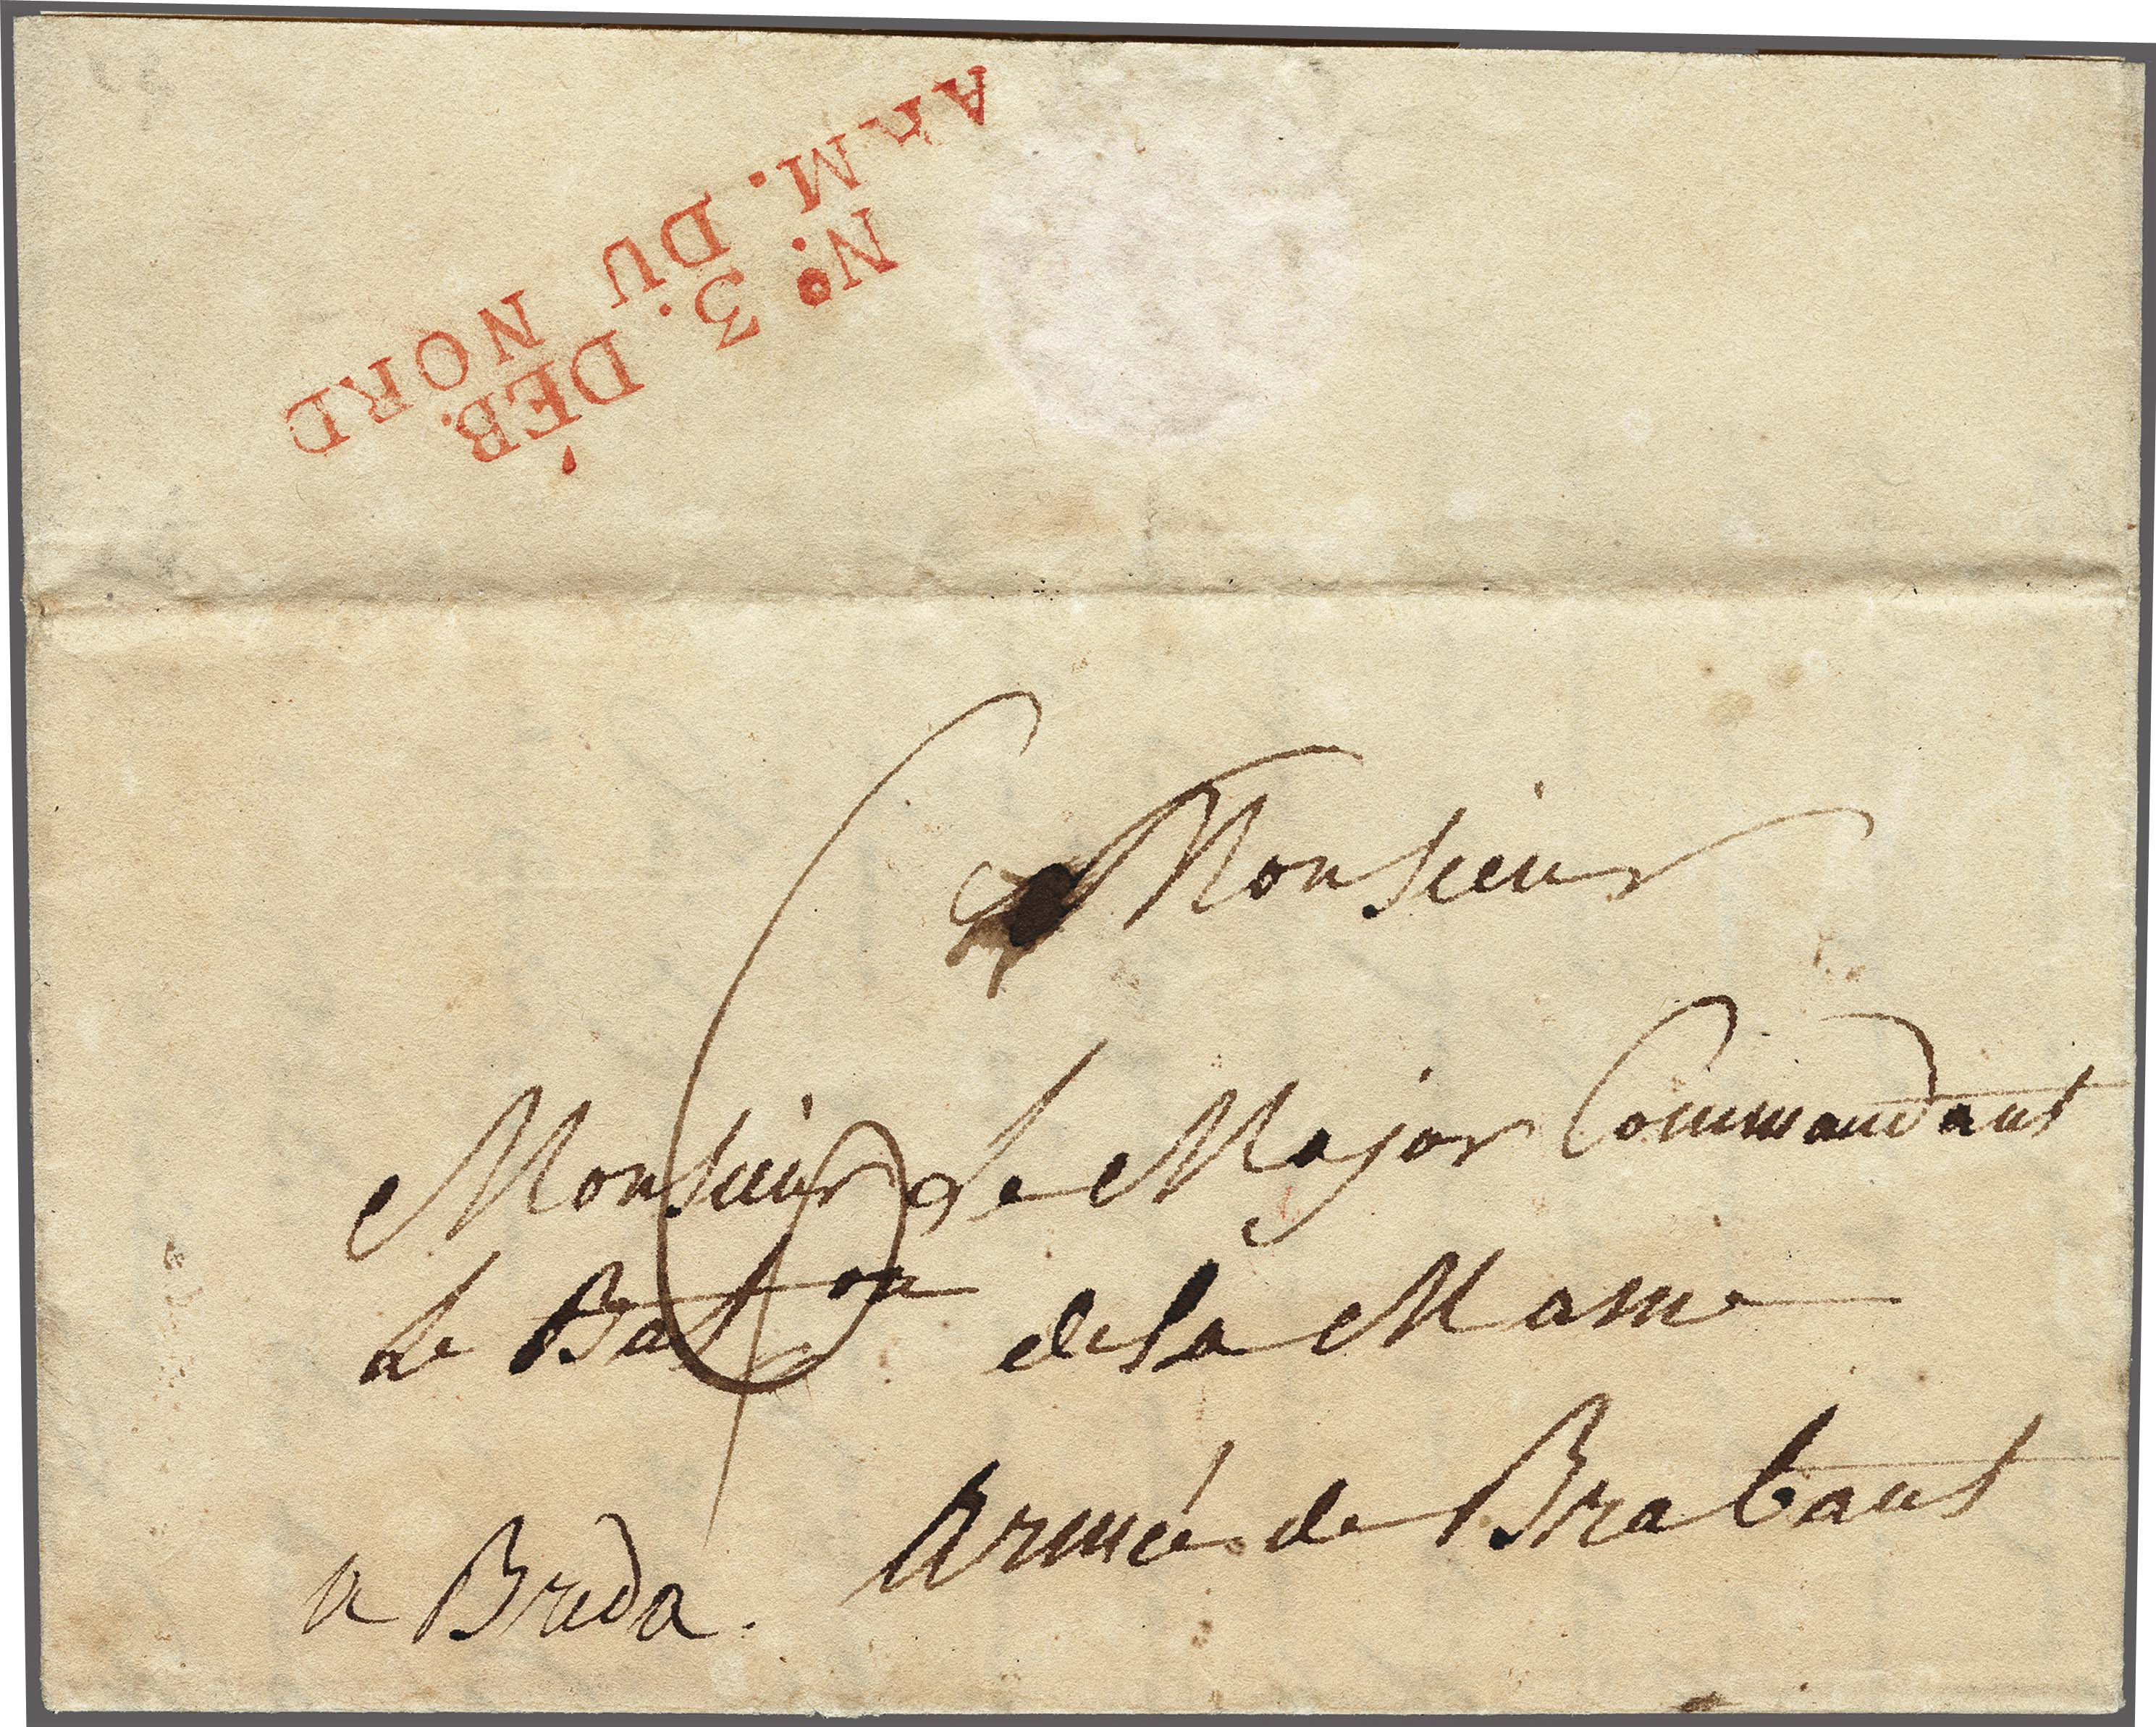 Nº 3. DÉB.
ARM. DU NORD
Monsieur
Monsieur le Major Commandant
le Baton de la Marne
Armée de Brabant
a Breda.
6